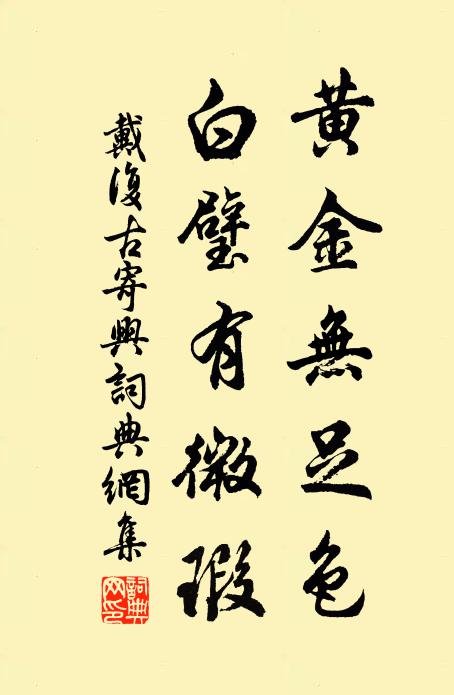 黄金無足色
白璧有微瑕
戴復古寄興詞典網集
詞典網印